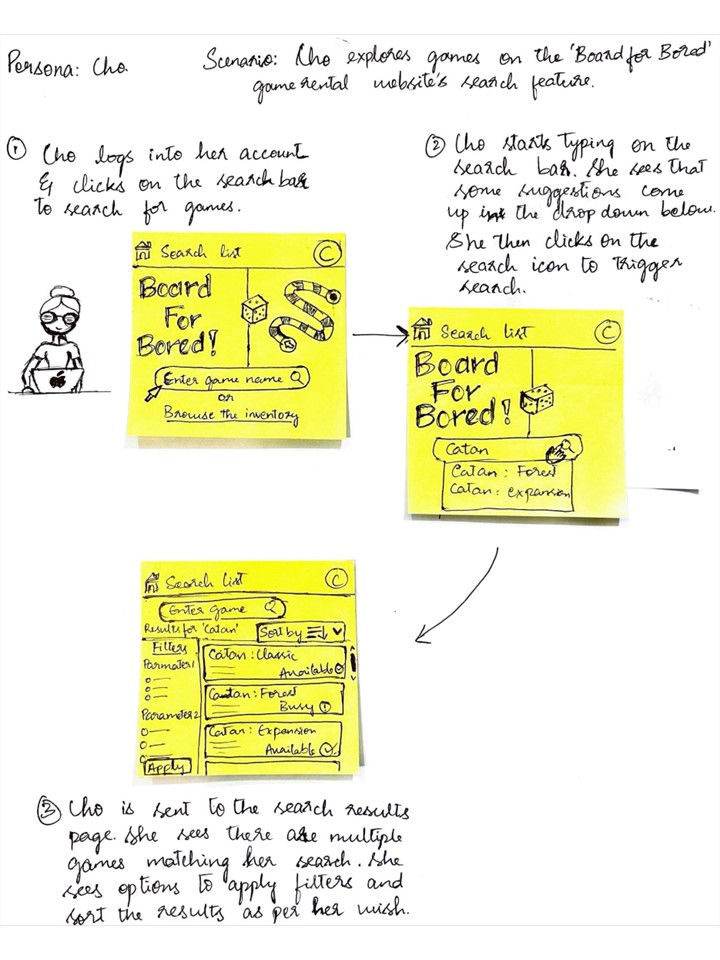 Persona: Cho.
Scenario: Cho explores games on the 'Board for Bored'
game rental website's search feature.
① Cho logs into her account
& clicks on the search bar
to search for games.
Search list C
Board
For
Bored!
Enter game name
or
Browse the inventory
② Cho starts typing on the
search bar. She sees that
some suggestions come
up in the drop down below.
She then clicks on the
search icon to trigger
search.
Search list C
Board
For
Bored!
Catan
Catan: Forest
Catan: expansion
Search List C
Enter game
Results for 'Catan' Sort by
Filters
Parmater1
Parameter2
Apply
Catan: Classic
Available
Catan: Forest
Busy
Catan: Expansion
Available
③ Cho is sent to the search results
page. She sees there are multiple
games matching her search. She
sees options to apply filters and
sort the results as per her wish.